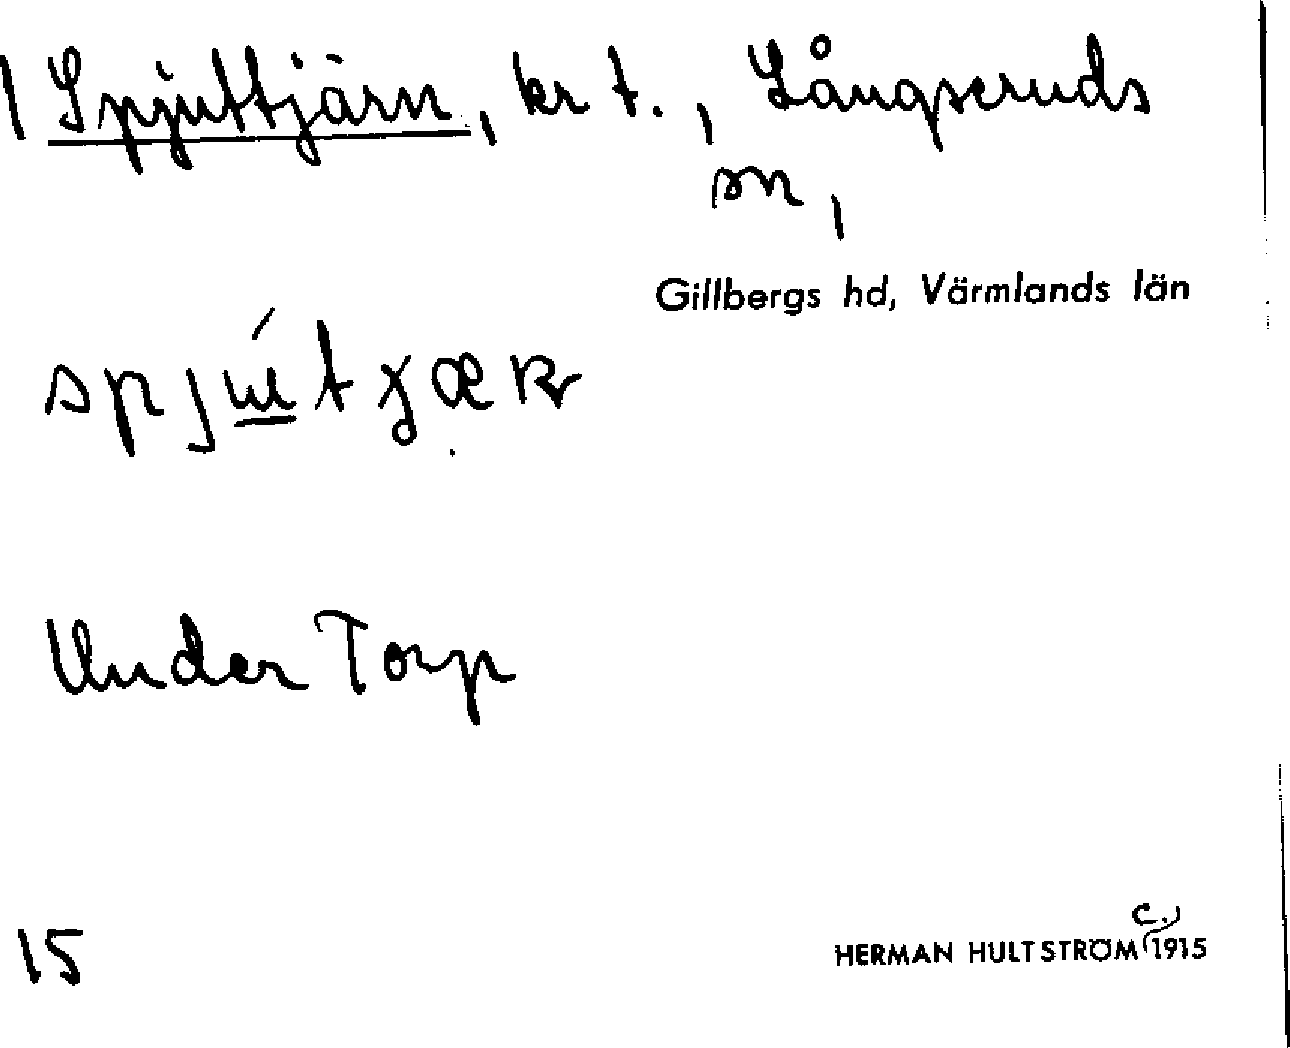 1 Spjuttjärn, kr t., Långseruds
sn,
Gillbergs hd, Värmlands län
Under Torp
15
c.
HERMAN HULTSTRÖM 1915